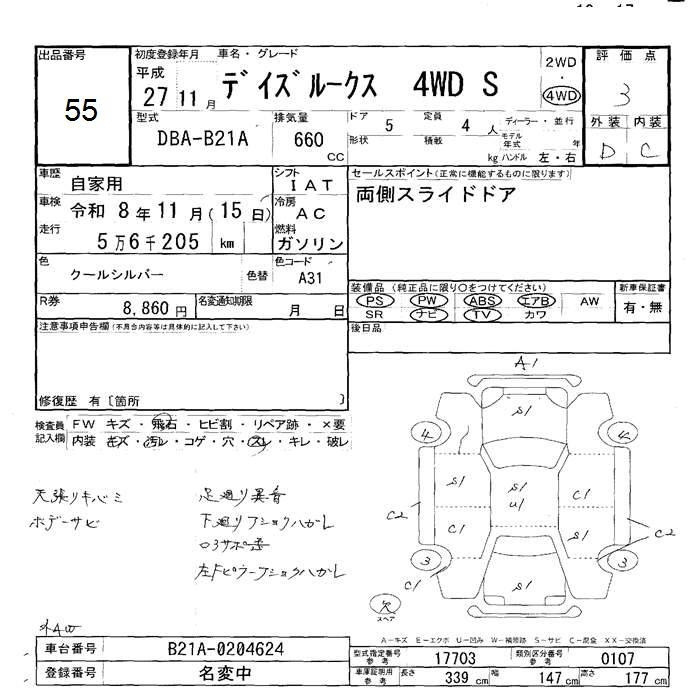 出品番号
55
初度登録年月 車名・グレード
平成
27 11月
デイズルークス 4WD S
2WD
・
4WD
評価点
3
外装 内装
D C
型式
DBA-B21A
排気量
660
CC
ドア 5 定員 4人 ディーラー・並行
形状 積載 kg モデル年式 年
ハンドル 左・右
車歴 自家用
シフト IAT
車検 令和 8年11月(15日)
冷房 AC
走行 5万6千205 km
燃料 ガソリン
セールスポイント(正常に機能するものに限ります)
両側スライドドア
色 クールシルバー 色替
色コード A31
装備品(純正品に限り○をつけてください)
PS PW ABS エアB AW
SR ナビ TV カワ
新車保証書
有・無
R券 8,860円
名変通知期限 月 日
後日品
注意事項申告欄(不具合内容等は具体的に記入して下さい)
修復歴 有〔箇所 〕
検査員記入欄
FW キズ・飛石・ヒビ割・リペア跡・×要
内装 キズ・汚レ・コゲ・穴・スレ・キレ・破レ
天張リキバミ
ボデーサビ
足廻り異音
下廻りフショクハガレ
外AW
A1
S1
4
4
S1
S1
U1
C1
C2
C1
S1
C2
3
3
C1
S1
欠
スペア
A-キズ E-エクボ U-凹み W-補修跡 S-サビ C-腐食 XX-交換済
車台番号 B21A-0204624
登録番号 名変中
型式指定番号 参考 17703
類別区分番号 参考 0107
車庫証明用 参考 長さ 339cm 幅 147cm 高さ 177cm